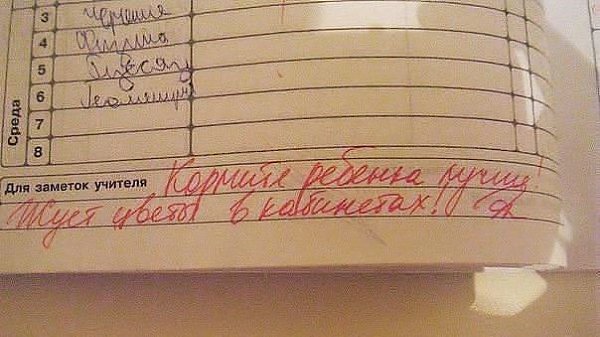 3 черчения
4 Физика
5 Русяз
6 Геометрия
7
8
Среда
Для заметок учителя Кормите ребенка лучше!
Жует цветы в кабинетах!